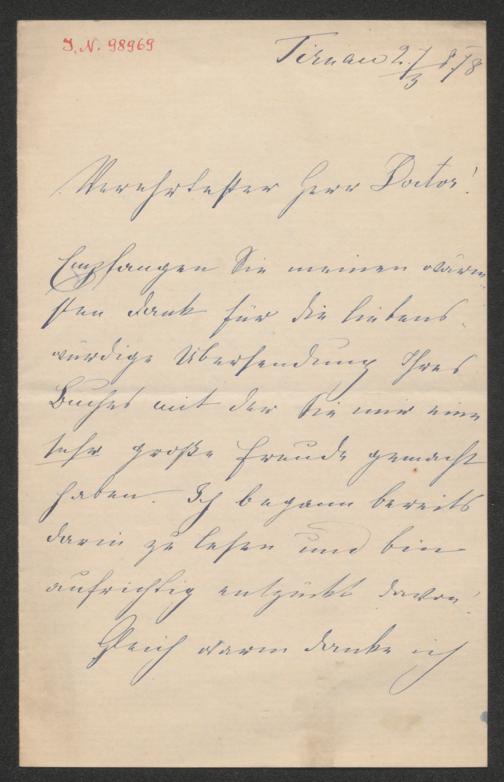 I. N. 98969
Tirnau 27/3 878
Verehrtester Herr Doctor!
Empfangen Sie meinen wärm-
sten Dank für die liebens-
würdige Übersendung Ihres
Buches mit der Sie mir eine
sehr große Freude gemacht
haben. Ich begann bereits
darin zu lesen und bin
aufrichtig entzückt davon!
Gleich warm danke ich